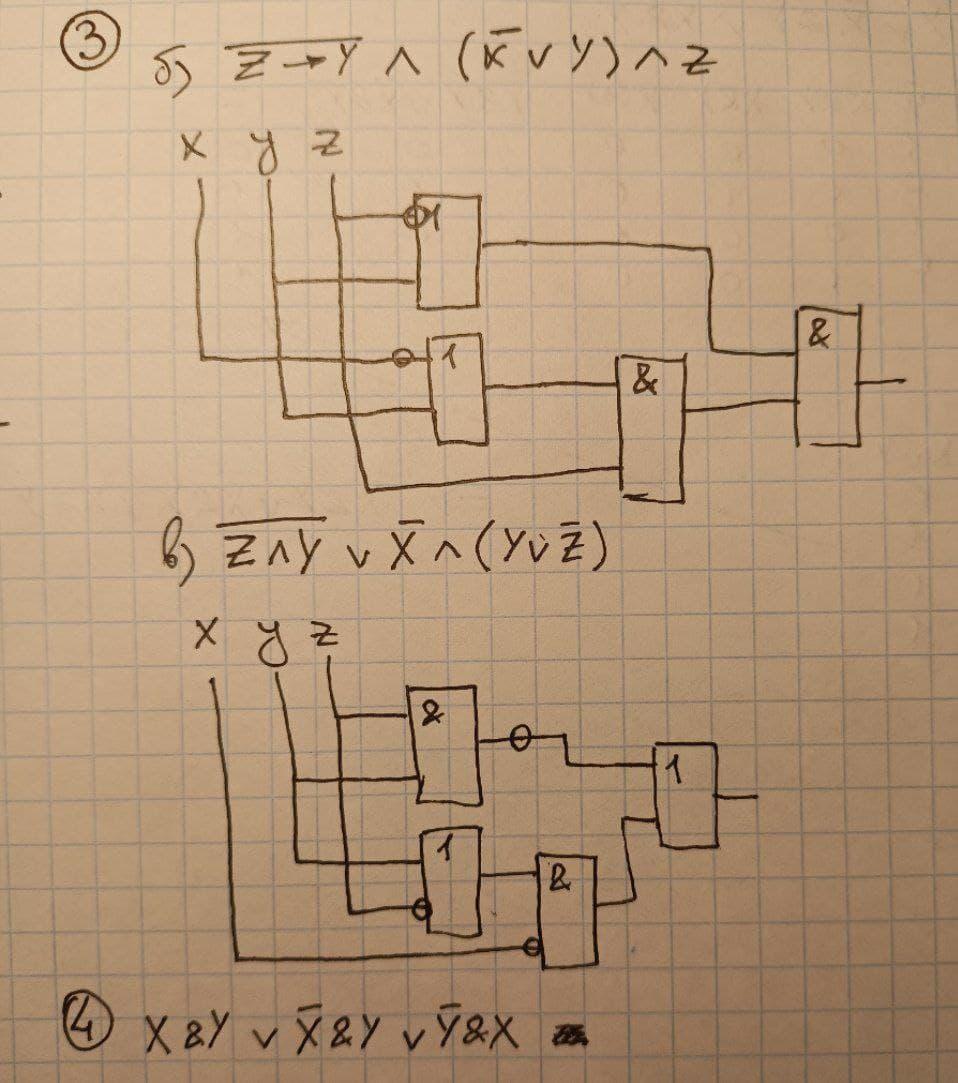 ③ б) Z̅ ̅→̅ ̅Y̅ ∧ (X̅ ∨ Y) ∧ Z
x y z
1
1
&
&
в) Z̅ ̅∧̅ ̅Y̅ ∨ X̅ ∧ (Y ∨ Z̅)
x y z
&
1
1
&
④ X & Y ∨ X̅ & Y ∨ Y̅ & X